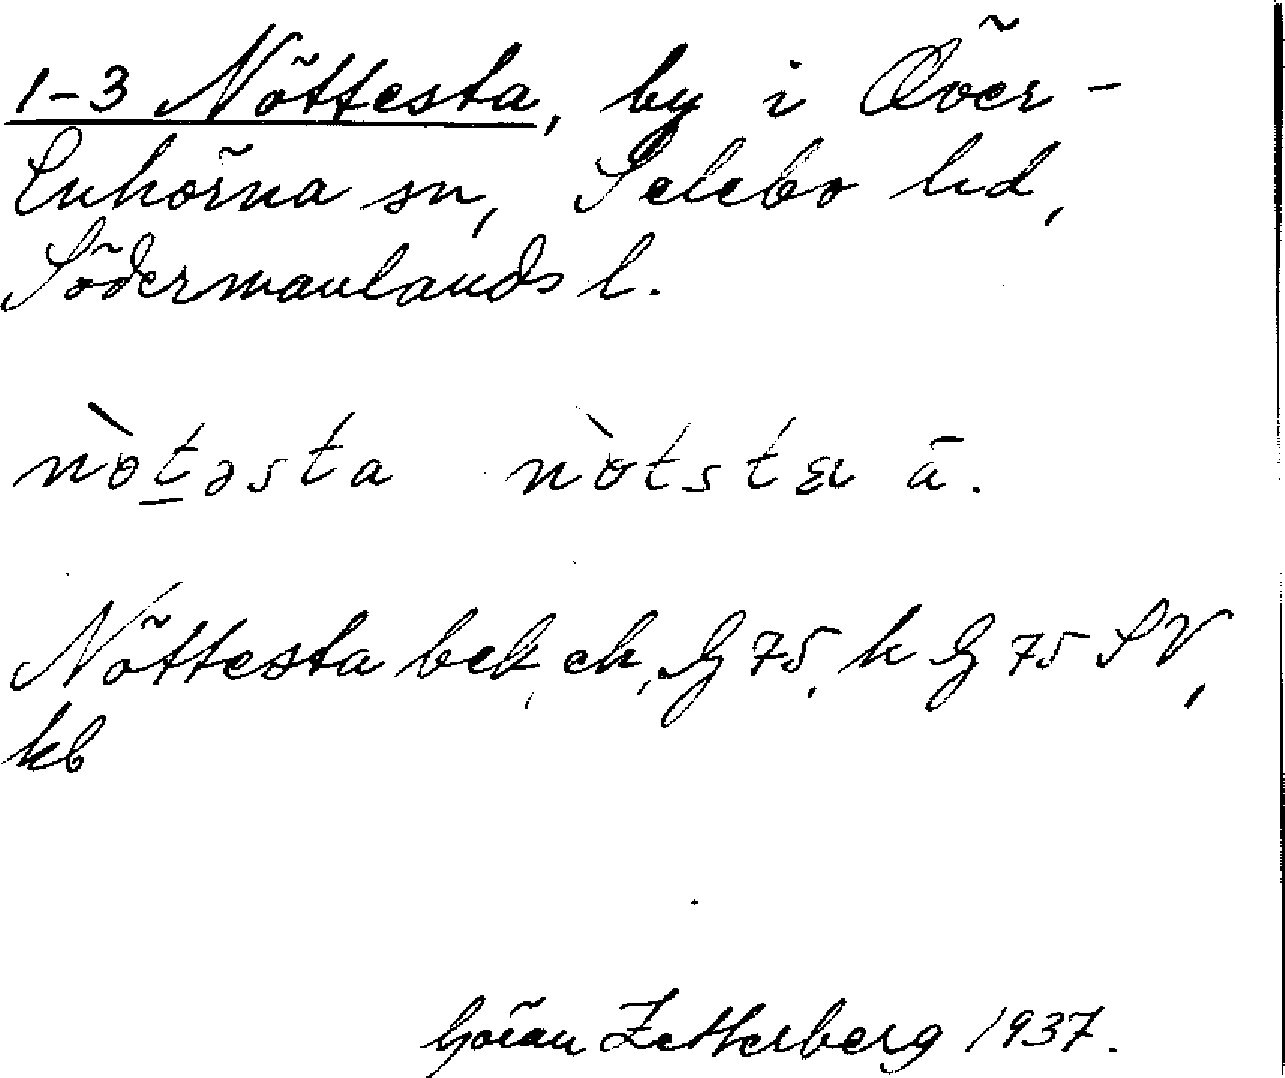 1-3 Nöttesta, by i Över-
Enhörna sn, Selebo hd,
Södermanlands l.
nò̱təsta nòtstɑ ā.
Nöttesta bek, ek, Lg 75, h Lg 75 SV,
kb
Göran Zetterberg 1937.